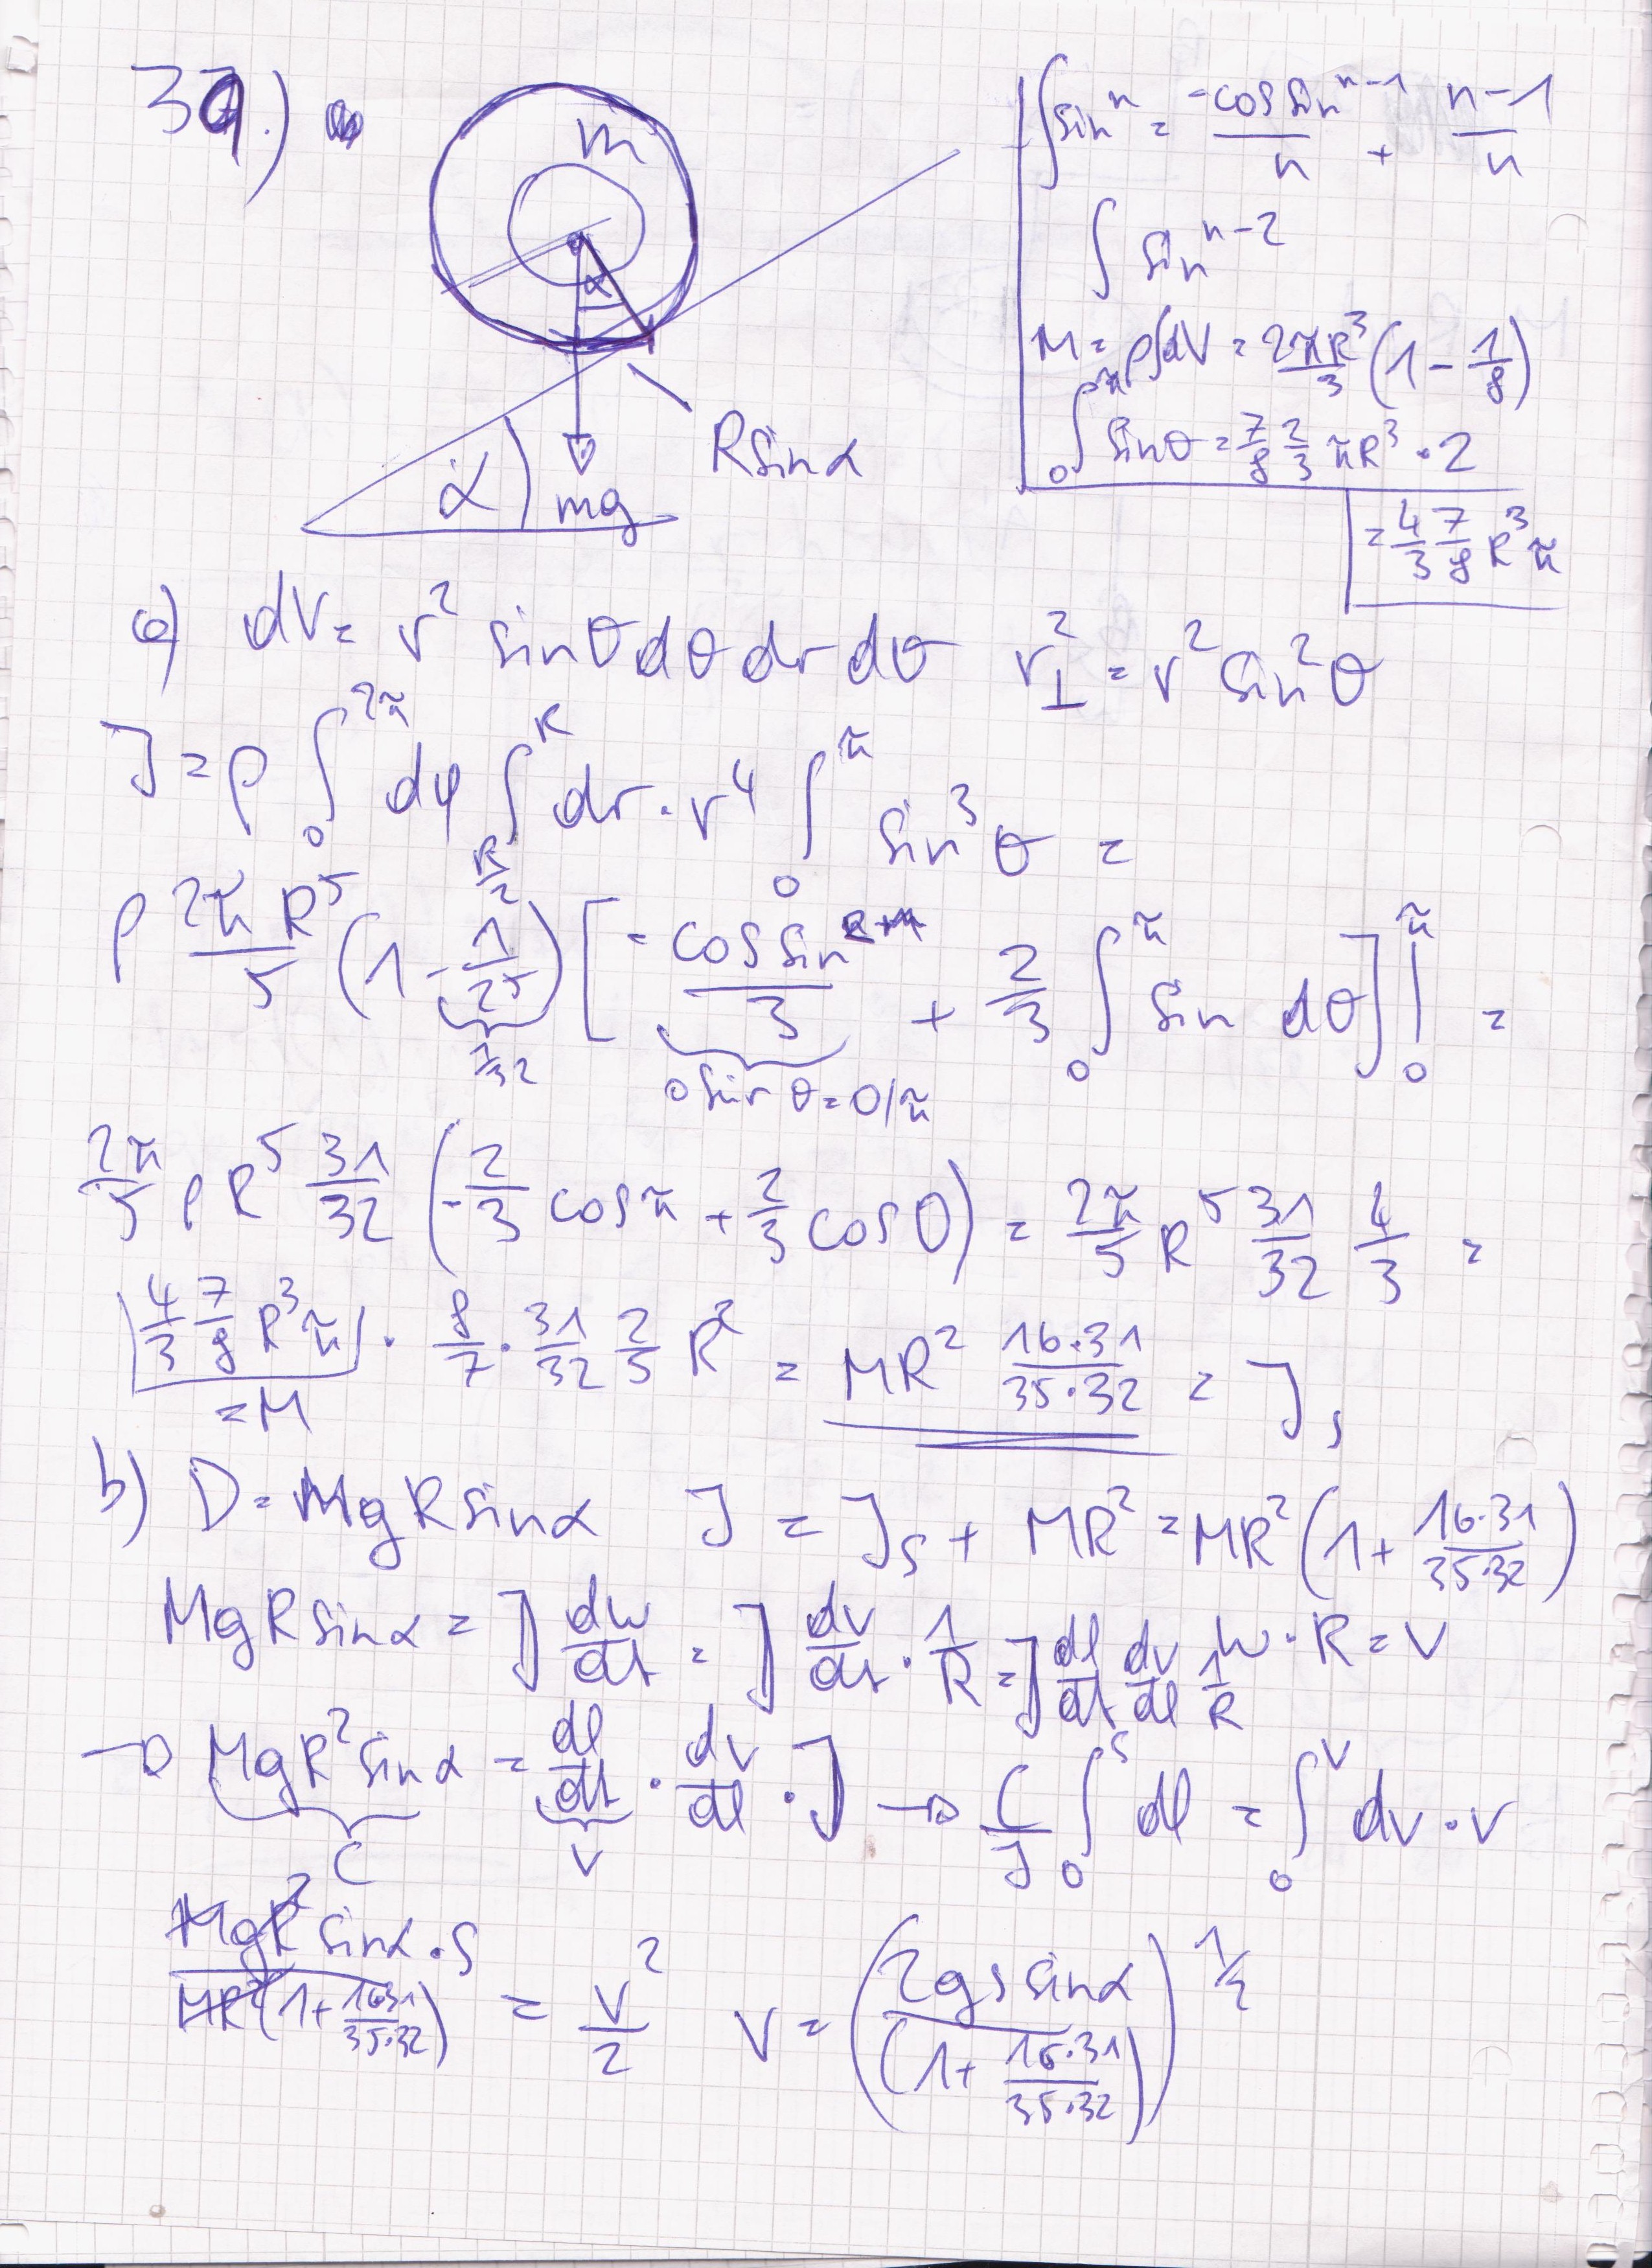 39.)
m
α
R sin α
α
mg
∫sin^n = -cos sin^(n-1)/n + (n-1)/n
∫ sin^(n-2)
M = ρ∫dV = 2πR³/3 (1 - 1/8)
∫₀^π sinθ = 7/8 2/3 πR³ · 2
= 4/3 7/8 R³π
a) dV = r² sinθ dθ dr dθ r⊥² = r² sin²θ
J = ρ ∫₀^2π dφ ∫_R/2^R dr · r⁴ ∫₀^π sin³θ =
ρ 2πR⁵/5 (1 - 1/2⁵) [ -cos sin/3 + 2/3 ∫₀^π sin dθ ] |₀^π =
1/32 0 sin θ = 0/π
2π/5 ρR⁵ 31/32 (-2/3 cos π + 2/3 cos 0) = 2π/5 R⁵ 31/32 4/3 =
4/3 7/8 R³π · 8/7 · 31/32 2/5 R² = MR² 16·31/35·32 = J_s
= M
b) D = MgR sin α J = J_s + MR² = MR² (1 + 16·31/35·32)
MgR sin α = J dw/dt = J dv/dt · 1/R = J dl/dt dv/dl 1/R w · R = v
→ MgR² sin α = dl/dt · dv/dl · J → C/J ∫₀^s dl = ∫₀^v dv · v
C v
MgR² sin α · s / MR² (1 + 16·31/35·32) = v²/2 v = (2gs sin α / (1 + 16·31/35·32))^1/2